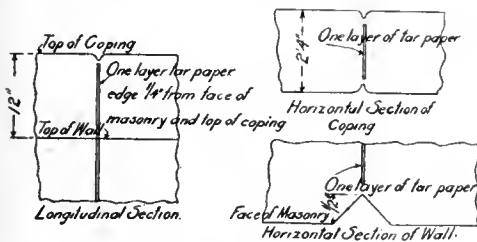 Top of Coping
One layer tar paper
edge 1/4" from face of
masonry and top of coping
12"
Top of Wall
Longitudinal Section.
2'4"
One layer of tar paper
Horizontal Section of
Coping
One layer of tar paper
Face of Masonry
Horizontal Section of Wall.